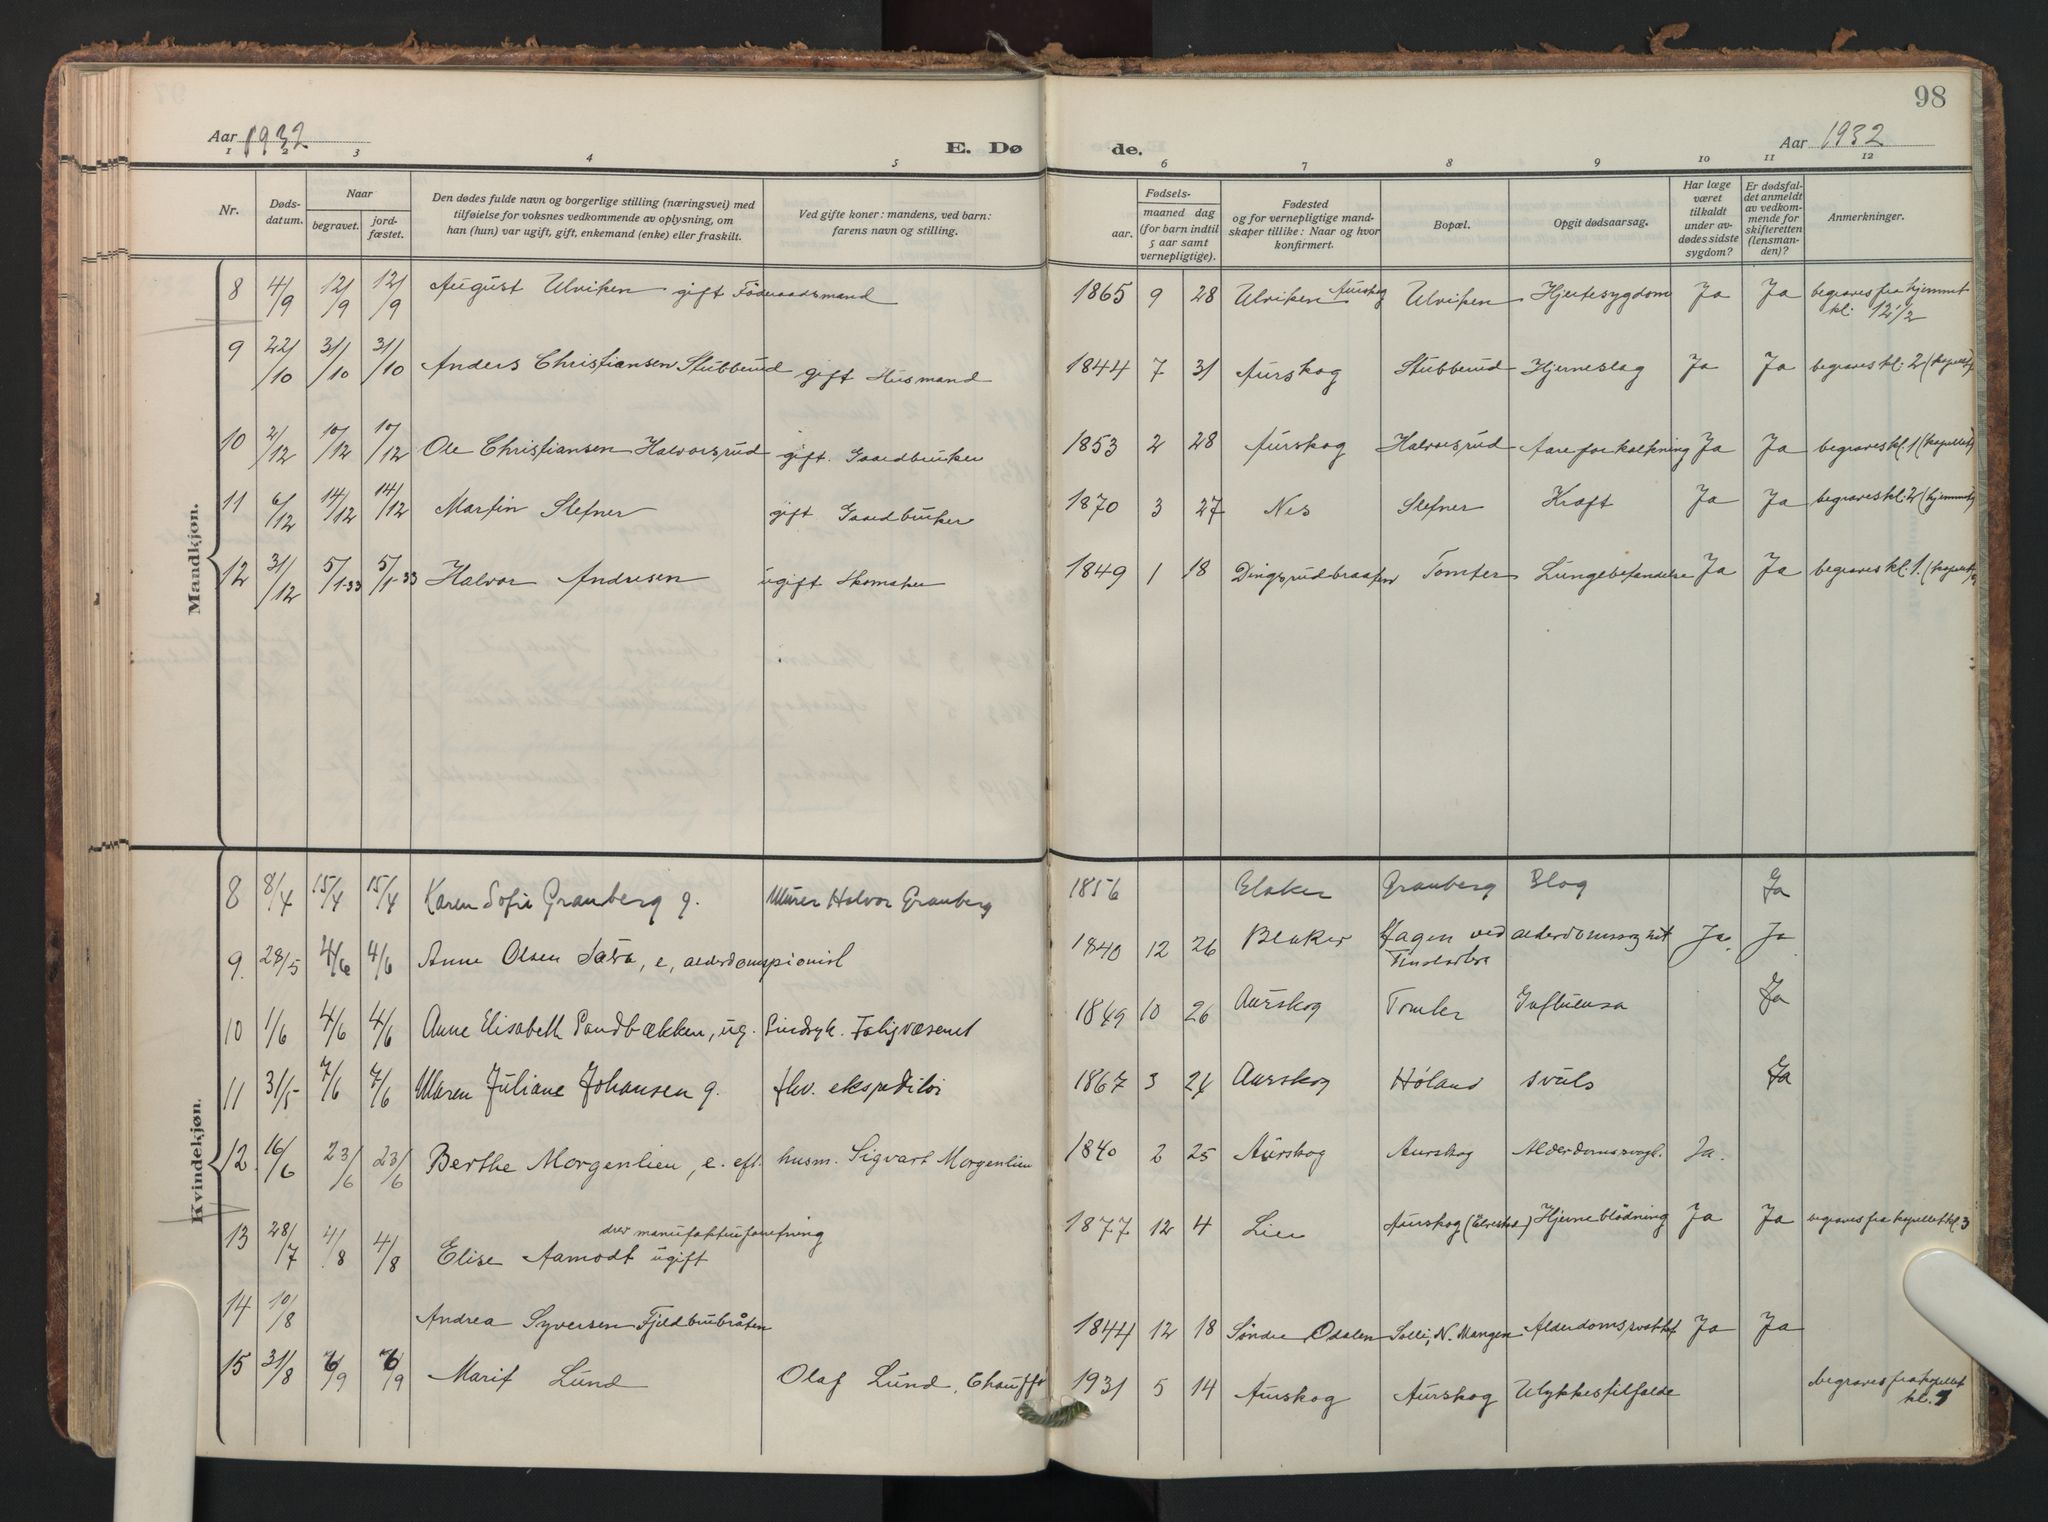 98
Aar 1932
E. Dø de.
Aar 1932
1 2 3 4 5 6 7 8 9 10 11 12
Nr.
Døds-datum.
Naar
begravet.
jord-fæstet.
Den dødes fulde navn og borgerlige stilling (næringsvei) med
tilføielse for voksnes vedkommende av oplysning, om
han (hun) var ugift, gift, enkemand (enke) eller fraskilt.
Ved gifte koner: mandens, ved barn:
farens navn og stilling.
Fødsels-
aar.
maaned dag
(for barn indtil
5 aar samt
vernepligtige).
Fødested
og for vernepligtige mand-
skaper tillike: Naar og hvor
konfirmert.
Bopæl.
Opgit dødsaarsag.
Har læge
været
tilkaldt
under av-
dødes sidste
sygdom?
Er dødsfal-
det anmeldt
av vedkom-
mende for
skifteretten
(lensman-
den)?
Anmerkninger.
Mandkjøn.
8 4/9 12/9 12/9 August Ulviken gift Föderaadsmand 1865 9 28 Ulviken Aurskog Ulviken Hjertesygdom Ja Ja begraves fra hjemmet
kl: 12 1/2
9 22/10 31/10 31/10 Anders Christiansen Stubberud gift Husmand 1844 7 31 Aurskog Stubberud Hjerneslag Ja Ja begraves kl: 2 (kapellet)
10 2/12 10/12 10/12 Ole Christiansen Halvorsrud gift. Gaardbruker 1853 2 28 Aurskog Halvorsrud Aareforkalkning Ja Ja begraves kl. 1 (kapellet)
11 6/12 14/12 14/12 Martin Slefner gift Gaardbruker 1870 3 27 Nes Slefner Kræft Ja Ja begraves kl. 2 (hjemmet)
12 31/12 5/1-33 5/1-33 Halvor Andresen ugift Skomaker 1849 1 18 Dingsrudbraaten Tomter Lungebetændelse Ja Ja begraves kl. 1. (kapellet)
Kvindekjøn.
8 8/4 15/4 15/4 Karen Sofie Granberg g. Murer Halvor Granberg 1856 Blaker Granberg Slag Ja
9. 28/5 4/6 4/6 Anne Olsen e, alderdomspionist 1840 12 26 Blaker Hagen ved Ja. Ja
10 1/6 4/6 4/6 Anne Elisabeth Sandbækken, ug. Sindsyk. 1849 10 26 Aurskog Tomter Influensa Ja
11 31/5 7/6 7/6 Maren Juliane Johansen g. fhv. ekspeditør 1867 3 24 Aurskog Høland svuls Ja
12. 16/6 23/6 23/6 Berthe Morgenlien, e. eft. husm. Sigvart Morgenlien 1840 2 25 Aurskog Aurskog Ja.
13 28/7 4/8 4/8 drev manufakturforretning
Elise Aamodt ugift 1877 12 4 Lier Aurskog Hjerneblødning Ja Ja begraves fra kapellet kl. 3
14 10/8 Andrea Syversen Fjeldbubråten 1844 12 18 Søndre Odalen Solli, N. Mangen Ja Ja
15 31/8 6/9 6/9 Marit Lund Olaf Lund, Chauffør 1931 5 14 Aurskog Aurskog Ulykkestilfælde begraves fra kapellet
kl. 1